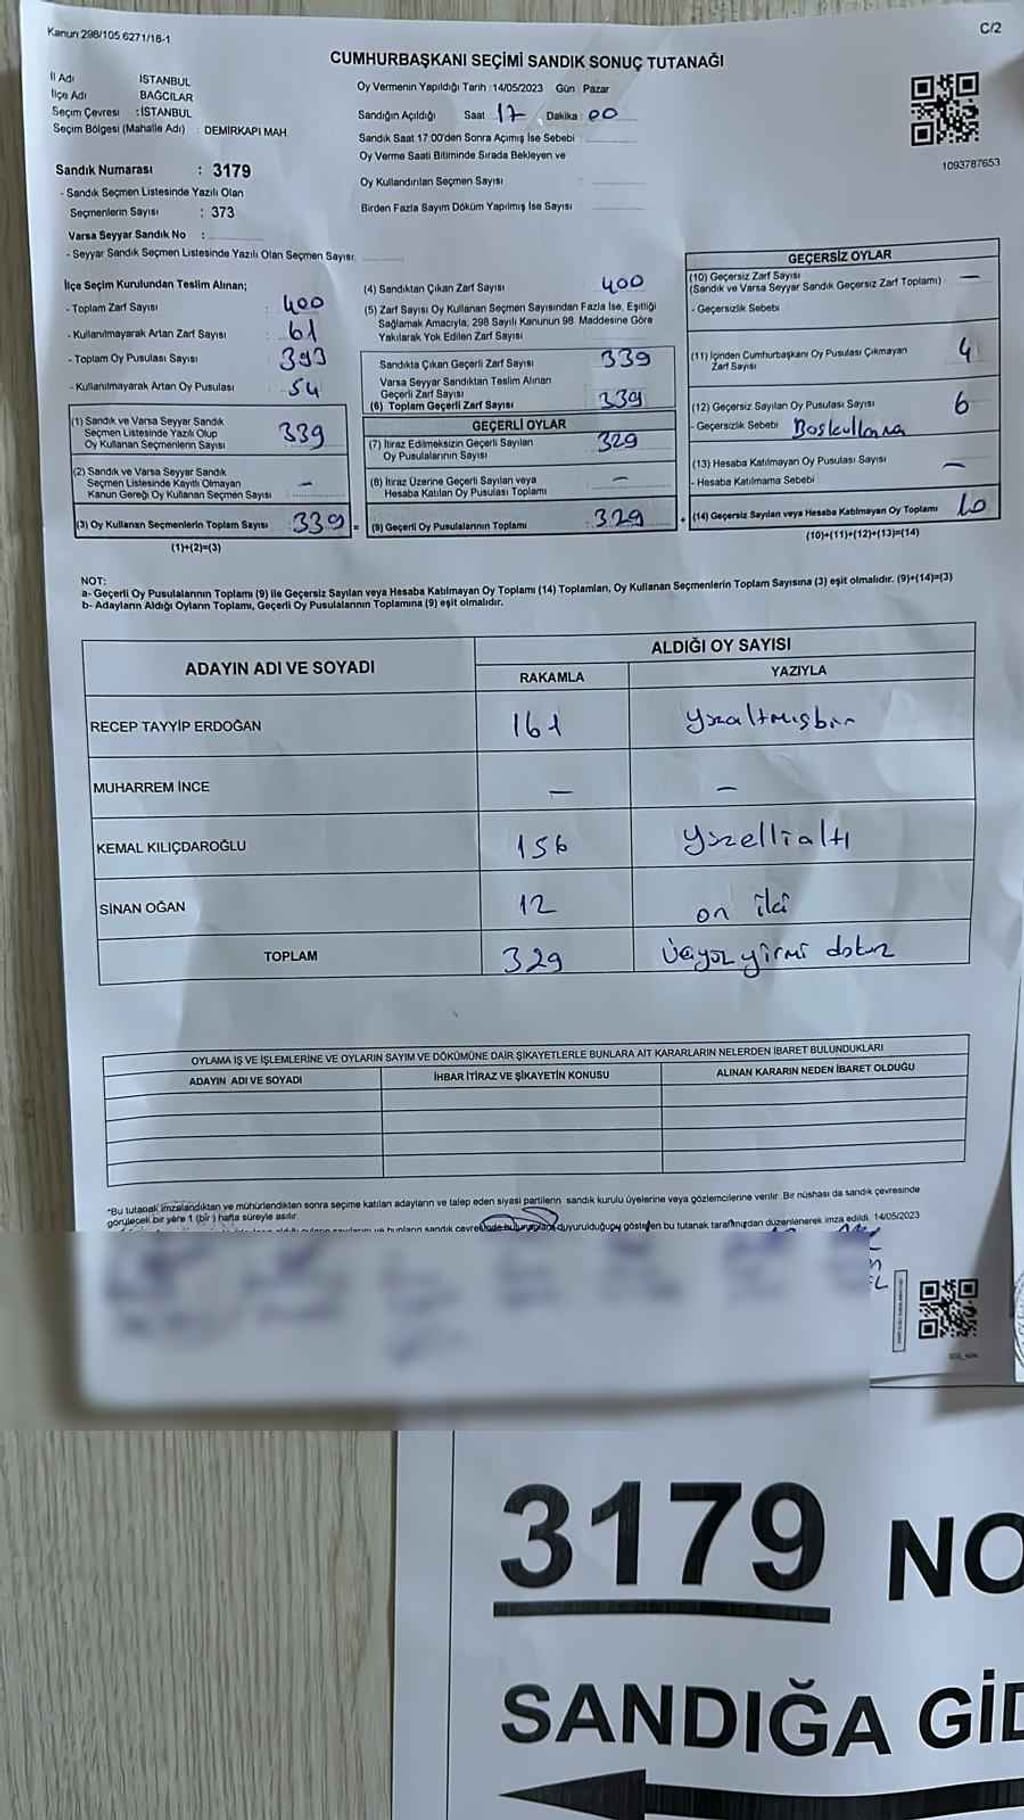 Kanun 298/105 6271/18-1
C/2
CUMHURBAŞKANI SEÇİMİ SANDIK SONUÇ TUTANAĞI
İl Adı İSTANBUL
İlçe Adı BAĞCILAR
Seçim Çevresi : İSTANBUL
Seçim Bölgesi (Mahalle Adı) : DEMİRKAPI MAH.
Oy Vermenin Yapıldığı Tarih : 14/05/2023 Gün Pazar
Sandığın Açıldığı Saat 17 Dakika : 00
Sandık Saat 17:00'den Sonra Açımış İse Sebebi
Oy Verme Saati Bitiminde Sırada Bekleyen ve
Oy Kullandırılan Seçmen Sayısı :
Birden Fazla Sayım Döküm Yapılmış İse Sayısı
1093787653
Sandık Numarası : 3179
- Sandık Seçmen Listesinde Yazılı Olan
Seçmenlerin Sayısı : 373
Varsa Seyyar Sandık No :
- Seyyar Sandık Seçmen Listesinde Yazılı Olan Seçmen Sayısı
İlçe Seçim Kurulundan Teslim Alınan;
- Toplam Zarf Sayısı : 400
- Kullanılmayarak Artan Zarf Sayısı : 61
- Toplam Oy Pusulası Sayısı : 393
- Kullanılmayarak Artan Oy Pusulası : 54
(1) Sandık ve Varsa Seyyar Sandık
Seçmen Listesinde Yazılı Olup
Oy Kullanan Seçmenlerin Sayısı 339
(2) Sandık ve Varsa Seyyar Sandık
Seçmen Listesinde Kayıtlı Olmayan
Kanun Gereği Oy Kullanan Seçmen Sayısı -
(3) Oy Kullanan Seçmenlerin Toplam Sayısı 339 =
(1)+(2)=(3)
(4) Sandıktan Çıkan Zarf Sayısı 400
(5) Zarf Sayısı Oy Kullanan Seçmen Sayısından Fazla İse, Eşitliği
Sağlamak Amacıyla, 298 Sayılı Kanunun 98. Maddesine Göre
Yakılarak Yok Edilen Zarf Sayısı
Sandıkta Çıkan Geçerli Zarf Sayısı 339
Varsa Seyyar Sandıktan Teslim Alınan
Geçerli Zarf Sayısı
(6) Toplam Geçerli Zarf Sayısı 339
GEÇERLİ OYLAR
(7) İtiraz Edilmeksizin Geçerli Sayılan
Oy Pusulalarının Sayısı 329
(8) İtiraz Üzerine Geçerli Sayılan veya
Hesaba Katılan Oy Pusulası Toplamı -
(9) Geçerli Oy Pusulalarının Toplamı 329 +
GEÇERSİZ OYLAR
(10) Geçersiz Zarf Sayısı
(Sandık ve Varsa Seyyar Sandık Geçersiz Zarf Toplamı) -
- Geçersizlik Sebebi
(11) İçinden Cumhurbaşkanı Oy Pusulası Çıkmayan
Zarf Sayısı 4
(12) Geçersiz Sayılan Oy Pusulası Sayısı 6
- Geçersizlik Sebebi Boşkullanma
(13) Hesaba Katılmayan Oy Pusulası Sayısı -
- Hesaba Katılmama Sebebi
(14) Geçersiz Sayılan veya Hesaba Katılmayan Oy Toplamı 10
(10)+(11)+(12)+(13)=(14)
NOT:
a- Geçerli Oy Pusulalarının Toplamı (9) ile Geçersiz Sayılan veya Hesaba Katılmayan Oy Toplamı (14) Toplamları, Oy Kullanan Seçmenlerin Toplam Sayısına (3) eşit olmalıdır. (9)+(14)=(3)
b- Adayların Aldığı Oyların Toplamı, Geçerli Oy Pusulalarının Toplamına (9) eşit olmalıdır.
ADAYIN ADI VE SOYADI
ALDIĞI OY SAYISI
RAKAMLA YAZIYLA
RECEP TAYYİP ERDOĞAN 161 yüzaltmışbir
MUHARREM İNCE - -
KEMAL KILIÇDAROĞLU 156 yüzellialtı
SİNAN OĞAN 12 on iki
TOPLAM 329 üçyüz yirmi dokuz
OYLAMA İŞ VE İŞLEMLERİNE VE OYLARIN SAYIM VE DÖKÜMÜNE DAİR ŞİKAYETLERLE BUNLARA AİT KARARLARIN NELERDEN İBARET BULUNDUKLARI
ADAYIN ADI VE SOYADI İHBAR İTİRAZ VE ŞİKAYETİN KONUSU ALINAN KARARIN NEDEN İBARET OLDUĞU
*Bu tutanak imzalandıktan ve mühürlendikten sonra seçime katılan adayların ve talep eden siyasi partilerin sandık kurulu üyelerine veya gözlemcilerine verilir. Bir nüshası da sandık çevresinde
görülecek bir yere 1 (bir) hafta süreyle asılır.
ve bunların sandık çevresinde duyurulduğunu gösteren bu tutanak tarafımızdan düzenlenerek imza edildi. 14/05/2023
3179 NO
SANDIĞA GİD